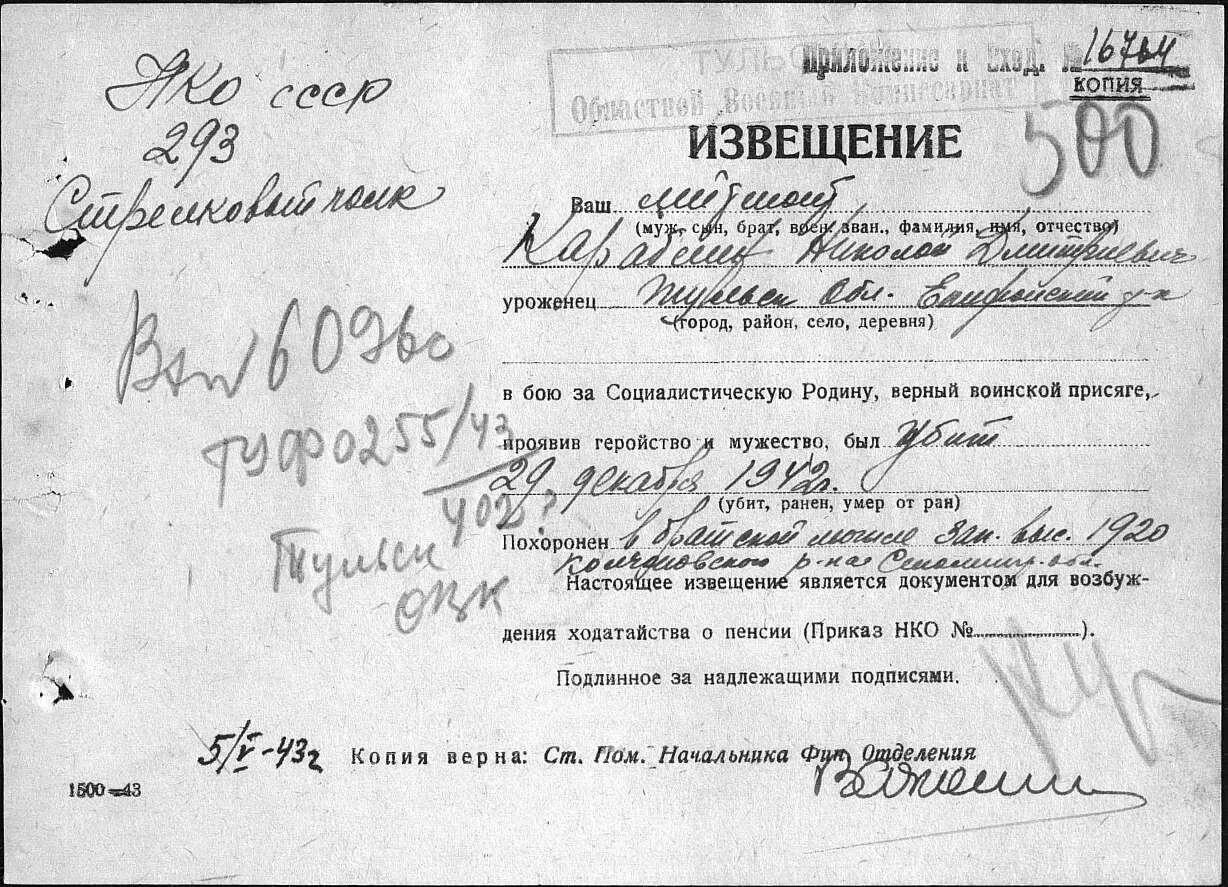 Приложение к Вход. № 16704
ТУЛЬС
Областной Военный Комиссариат
КОПИЯ
НКО СССР
293
Стрелковый полк
500
ИЗВЕЩЕНИЕ
Ваш
(муж, сын, брат, воен. зван., фамилия, имя, отчество)
Николай Дмитриевич
уроженец Тульск обл. Епифанский р-н
(город, район, село, деревня)
в бою за Социалистическую Родину, верный воинской присяге,
проявив геройство и мужество, был убит
29 декабря 1942г.
(убит, ранен, умер от ран)
Похоронен в братской могиле зап. выс. 1920
р-на обл.
Настоящее извещение является документом для возбуж-
дения ходатайства о пенсии (Приказ НКО №).
Подлинное за надлежащими подписями.
60960
255/43
402
Тульск
5/V-43г Копия верна: Ст. Пом. Начальника Фин. Отделения
1500—43